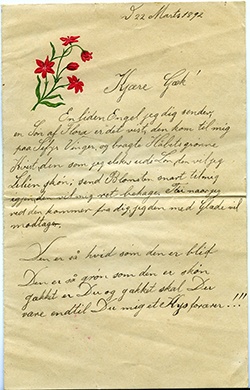 D 22 Marts 1892
Kjære Gæk!
En liden Engel jeg dig sender,
en Søn af Flora er det vist, den kom til mig
paa Vinger, og bragte Haabets grønne
Hvist, den som jeg elsker den vil jeg
Lilien skøn, send Blomsten snart tilmig
igjen den vil mig vist behage,
ved den kommer fra dig jeg den med Glæde vil
modtage.
Den er så hvid som den er bleg
Den er så grøn som den er skøn
gækket er Du og gækket skal Du
være endtil Du mig et forærer!!!